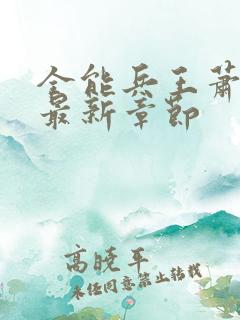 全能兵王萧
最新章节
高晓平
未经同意禁止转载